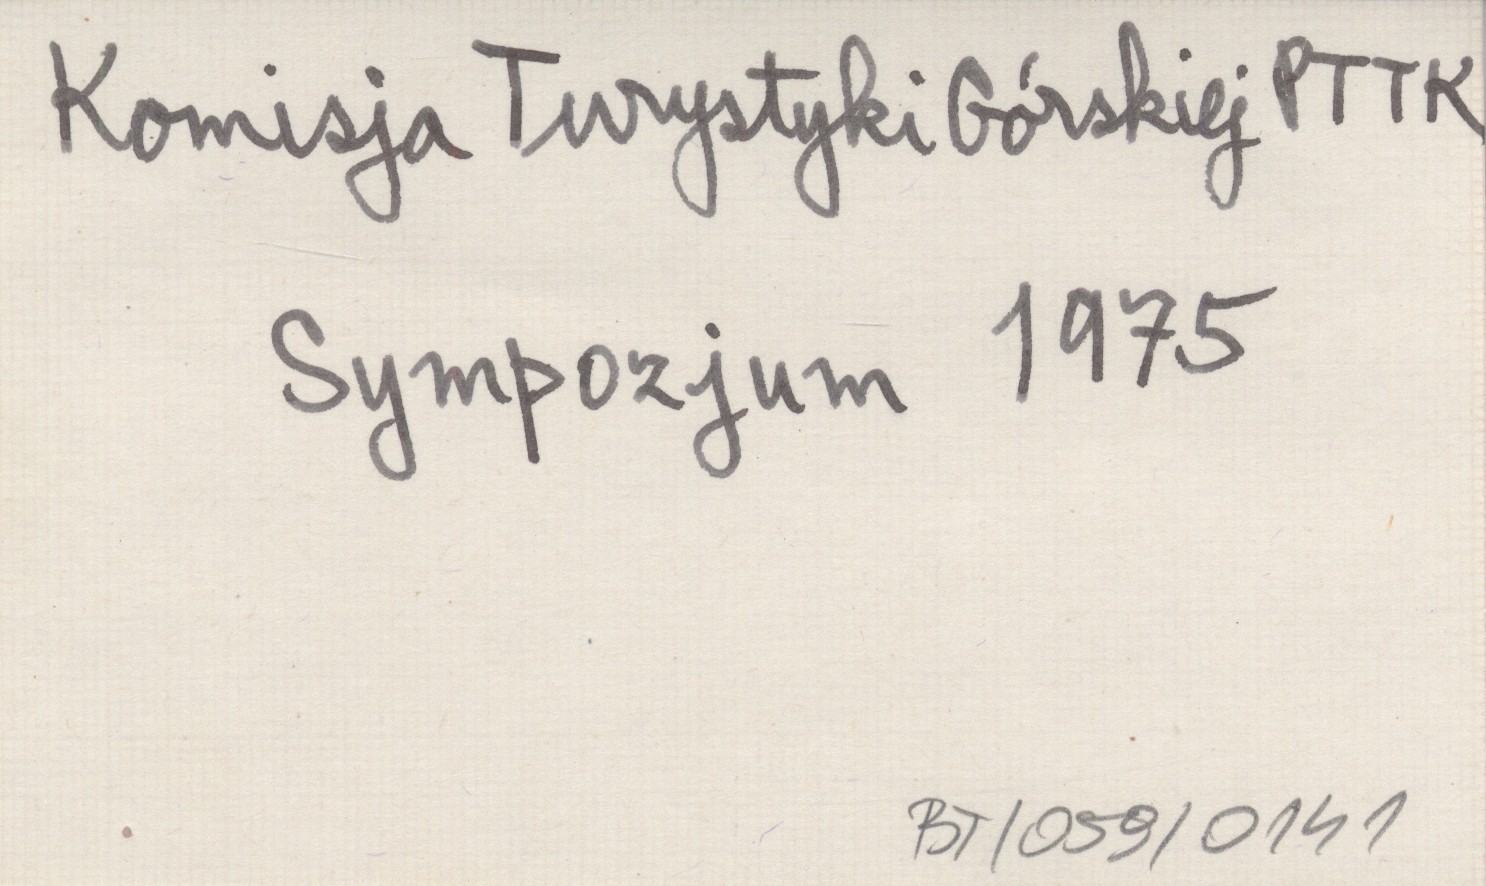 Komisja Turystyki Górskiej PTTK
Sympozjum 1975
BT/059/0141